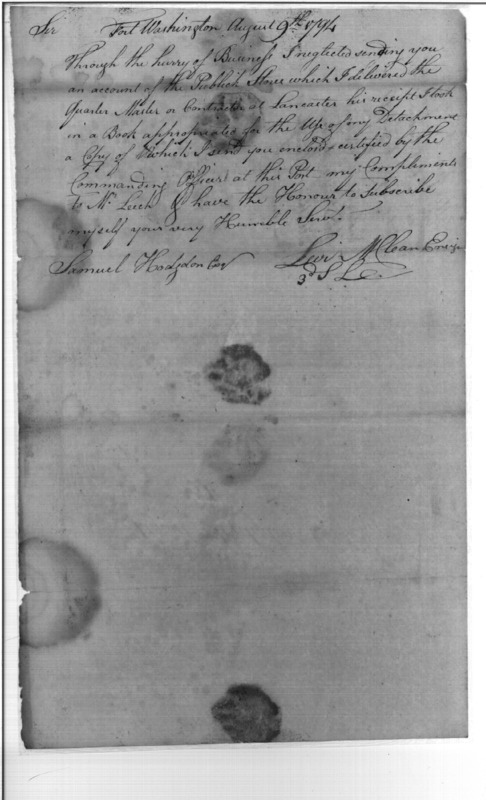 Sir Fort Washington August 9th 1794
Through the hurry of Business I neglected sending you
an account of the Publick Stores which I delivered the
Quarter Master or Contractor at Lancaster his receipt I took
in a Book appropriated for the Use of my Detachment
a Copy of which I send you enclosed certified by the
Commanding Officer at this Post my Compliments
to Mr Lieth I have the Honour to Subscribe
myself your very Humble Servt.
Samuel Hodgdon Esqr Levi McClean Ensign
3d S L